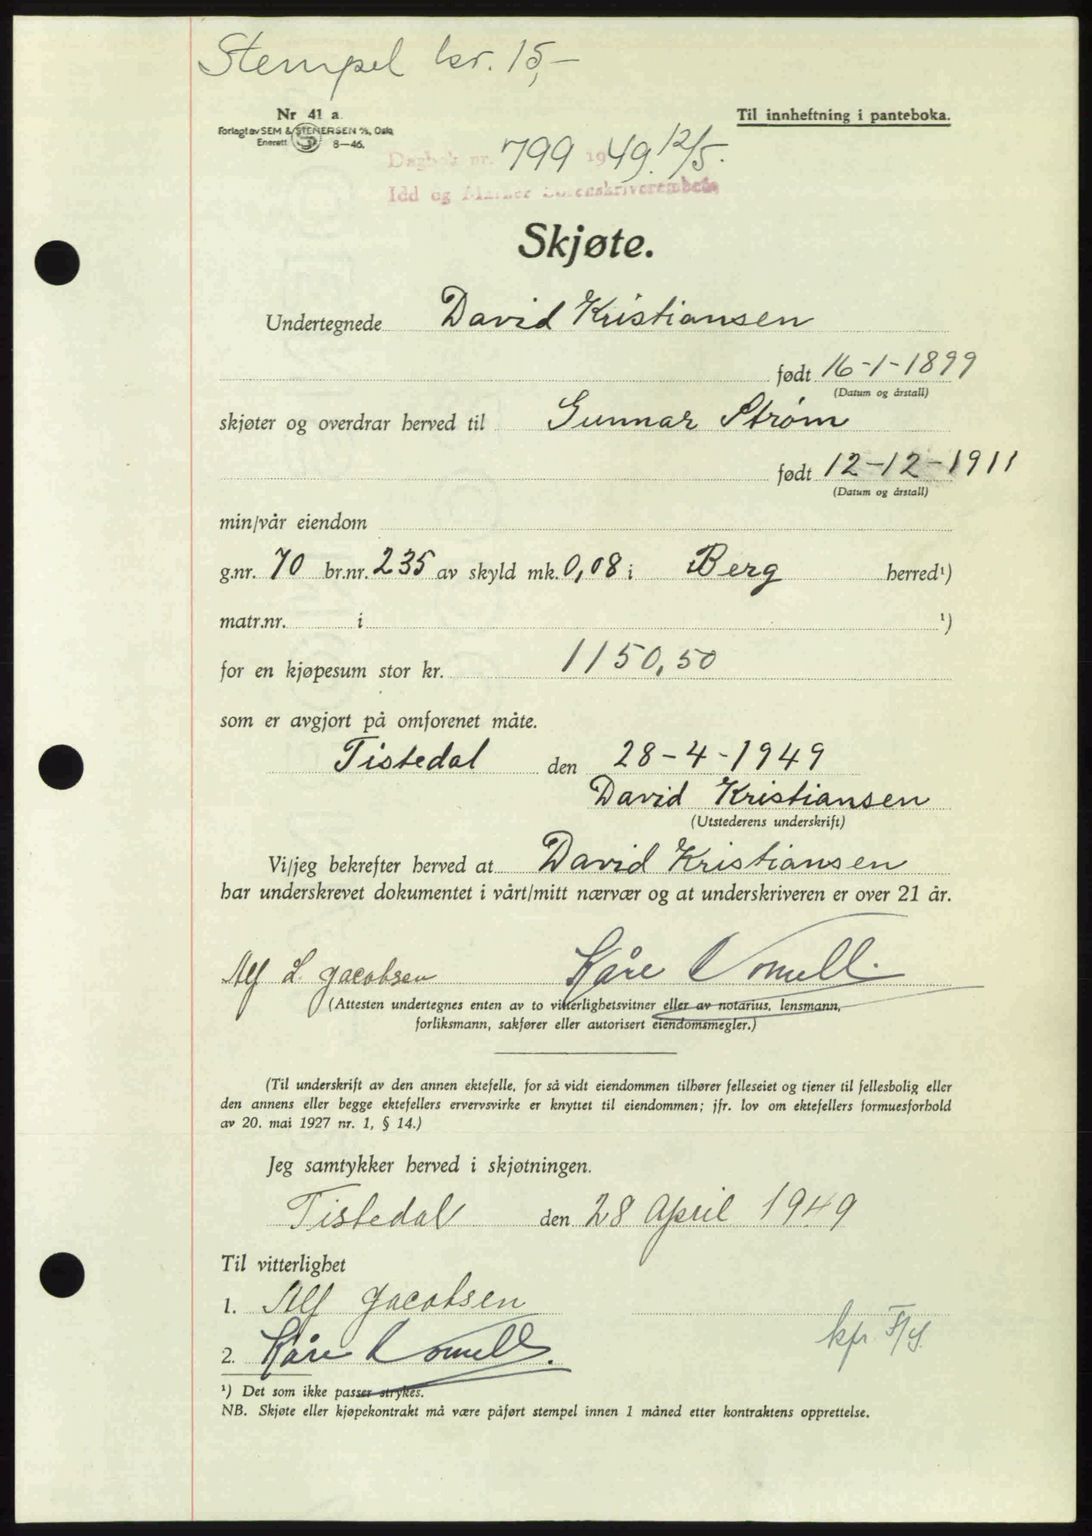 Stempel kr. 15,-
Nr 41 a.
Til innheftning i panteboka.
Forlagt av SEM & STENERSEN A/S, Oslo
Enerett 8-46.
Dagbok nr. 799 1949. 12/5.
Idd og Marker Sorenskriverembede
Skjøte.
Undertegnede David Kristiansen
født 16-1-1899
(Datum og årstall)
skjøter og overdrar herved til Gunnar Strøm
født 12-12-1911
(Datum og årstall)
min/vår eiendom
g.nr. 70 br.nr. 235 av skyld mk. 0,08 i Berg herred¹)
matr.nr. i ¹)
for en kjøpesum stor kr. 1150,50
som er avgjort på omforenet måte.
Tistedal den 28-4-1949
David Kristiansen
(Utstederens underskrift)
Vi/jeg bekrefter herved at David Kristiansen
har underskrevet dokumentet i vårt/mitt nærvær og at underskriveren er over 21 år.
Alf L. Jacobsen Kåre
(Attesten undertegnes enten av to vitterlighetsvitner eller av notarius, lensmann,
forliksmann, sakfører eller autorisert eiendomsmegler.)
(Til underskrift av den annen ektefelle, for så vidt eiendommen tilhører felleseiet og tjener til fellesbolig eller
den annens eller begge ektefellers ervervsvirke er knyttet til eiendommen; jfr. lov om ektefellers formuesforhold
av 20. mai 1927 nr. 1, § 14.)
Jeg samtykker herved i skjøtningen.
Tistedal den 28 April 1949
Til vitterlighet
1. Alf Jacobsen
2. Kåre
kfr
¹) Det som ikke passer strykes.
NB. Skjøte eller kjøpekontrakt må være påført stempel innen 1 måned etter kontraktens opprettelse.